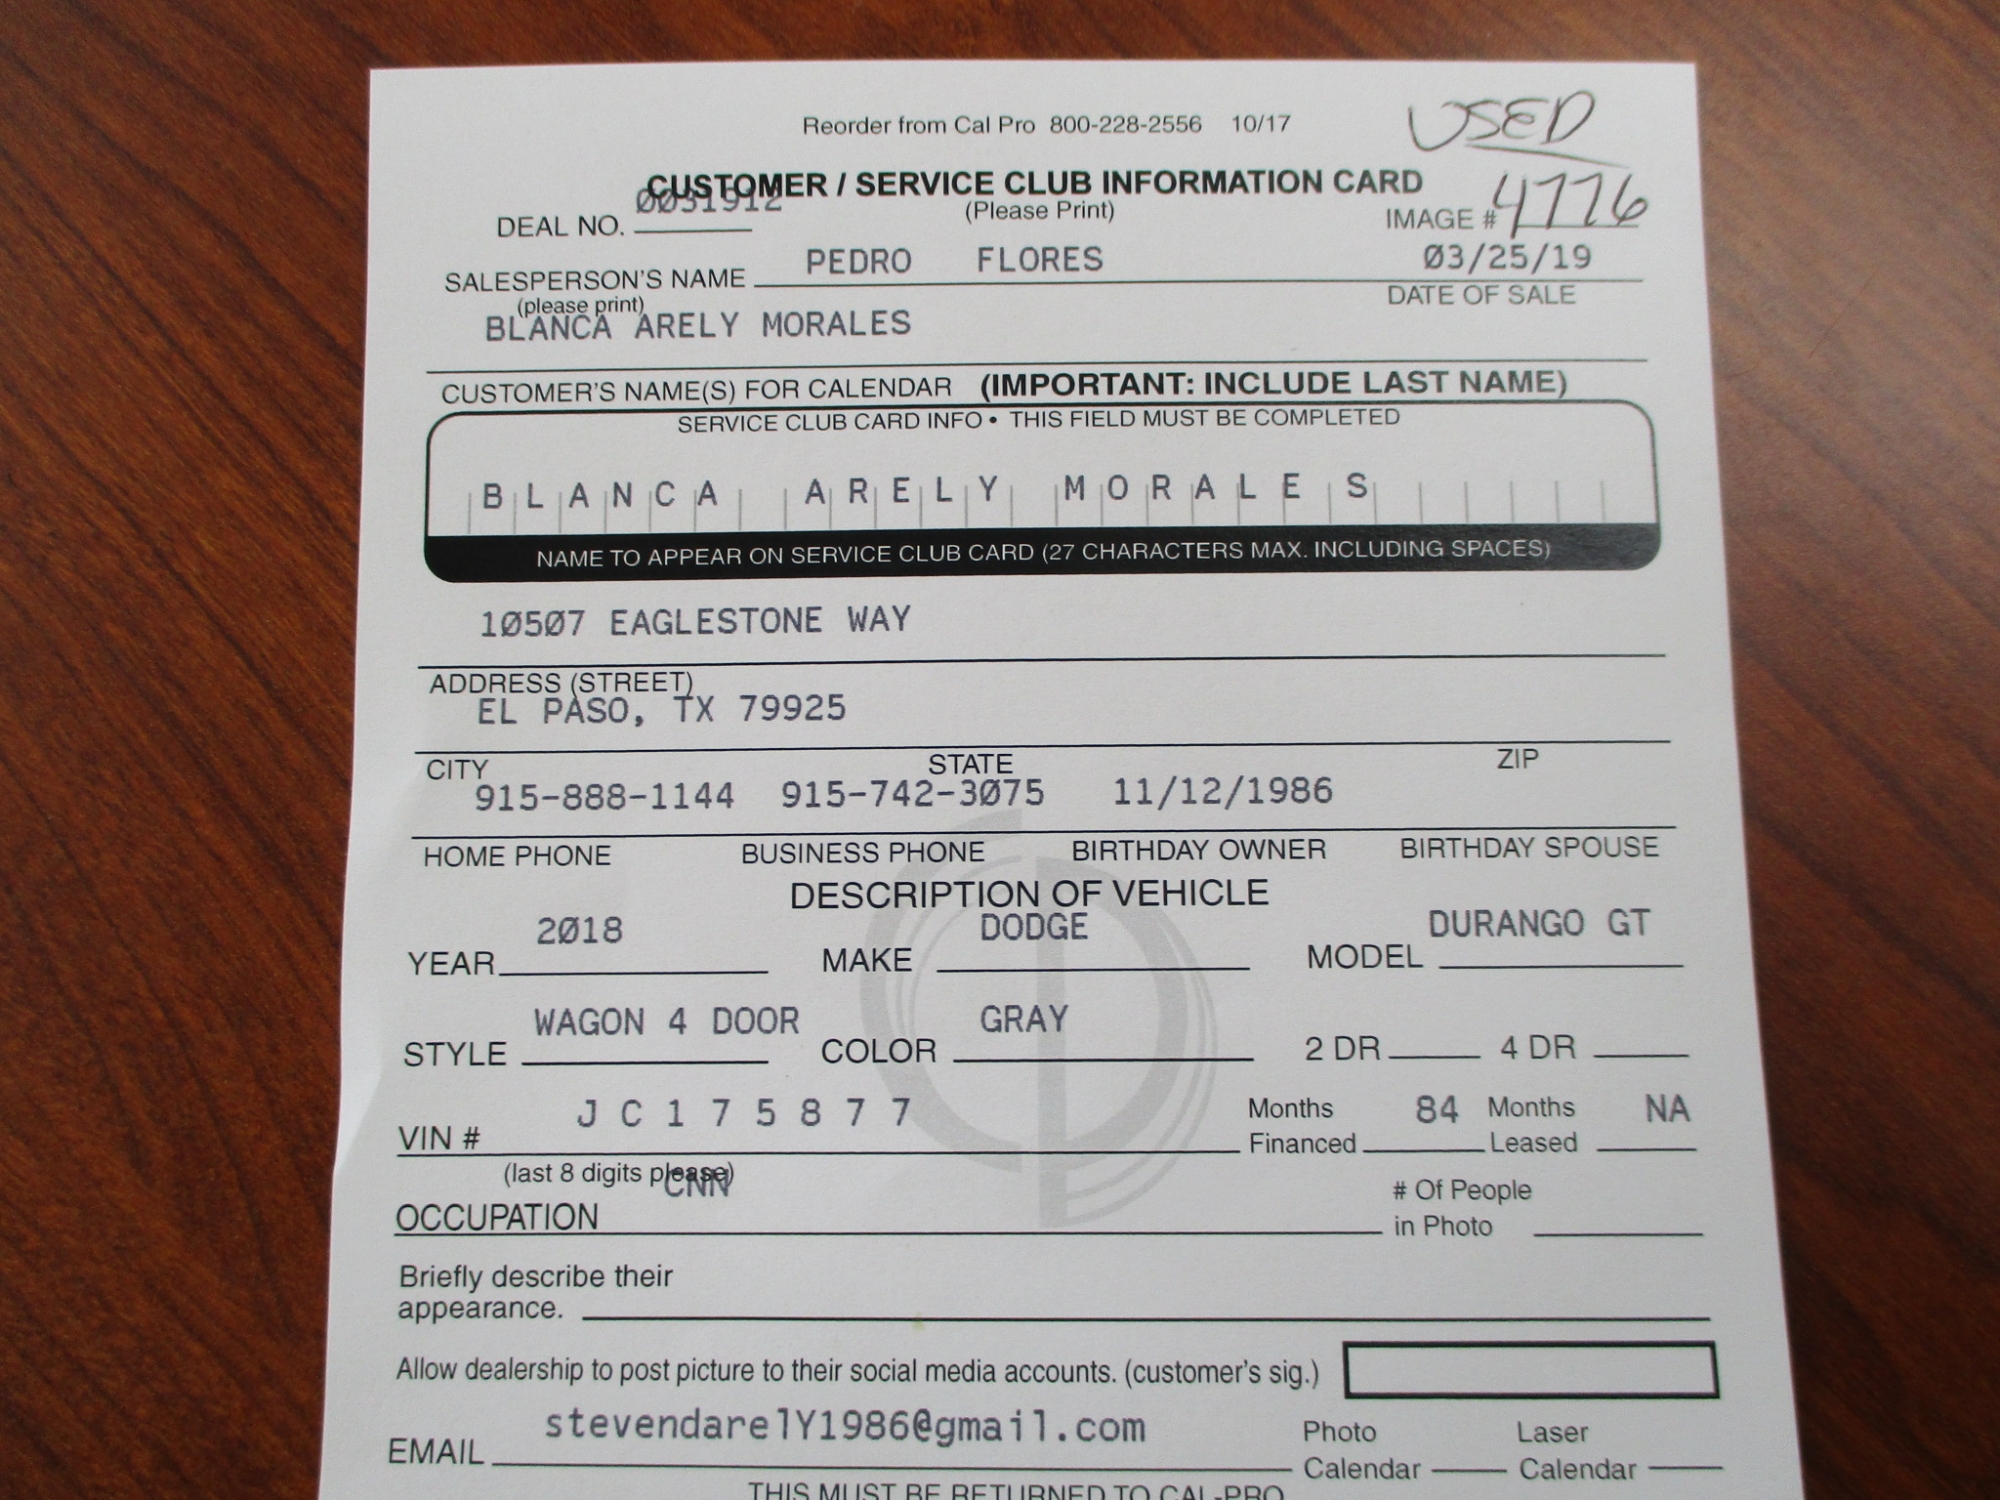 Reorder from Cal Pro 800-228-2556 10/17 USED
CUSTOMER / SERVICE CLUB INFORMATION CARD
DEAL NO. 0031912 (Please Print) IMAGE # 4776
SALESPERSON'S NAME PEDRO FLORES 03/25/19
(please print) DATE OF SALE
BLANCA ARELY MORALES
CUSTOMER'S NAME(S) FOR CALENDAR (IMPORTANT: INCLUDE LAST NAME)
SERVICE CLUB CARD INFO • THIS FIELD MUST BE COMPLETED
BLANCA ARELY MORALES
NAME TO APPEAR ON SERVICE CLUB CARD (27 CHARACTERS MAX. INCLUDING SPACES)
10507 EAGLESTONE WAY
ADDRESS (STREET)
EL PASO, TX 79925
CITY STATE ZIP
915-888-1144 915-742-3075 11/12/1986
HOME PHONE BUSINESS PHONE BIRTHDAY OWNER BIRTHDAY SPOUSE
DESCRIPTION OF VEHICLE
YEAR 2018 MAKE DODGE MODEL DURANGO GT
STYLE WAGON 4 DOOR COLOR GRAY 2 DR 4 DR
VIN # J C 1 7 5 8 7 7 Months Financed 84 Months Leased NA
(last 8 digits please)
OCCUPATION CNN # Of People in Photo
Briefly describe their
appearance.
Allow dealership to post picture to their social media accounts. (customer's sig.)
EMAIL stevendarelY1986@gmail.com Photo Calendar Laser Calendar
THIS MUST BE RETURNED TO CAL-PRO